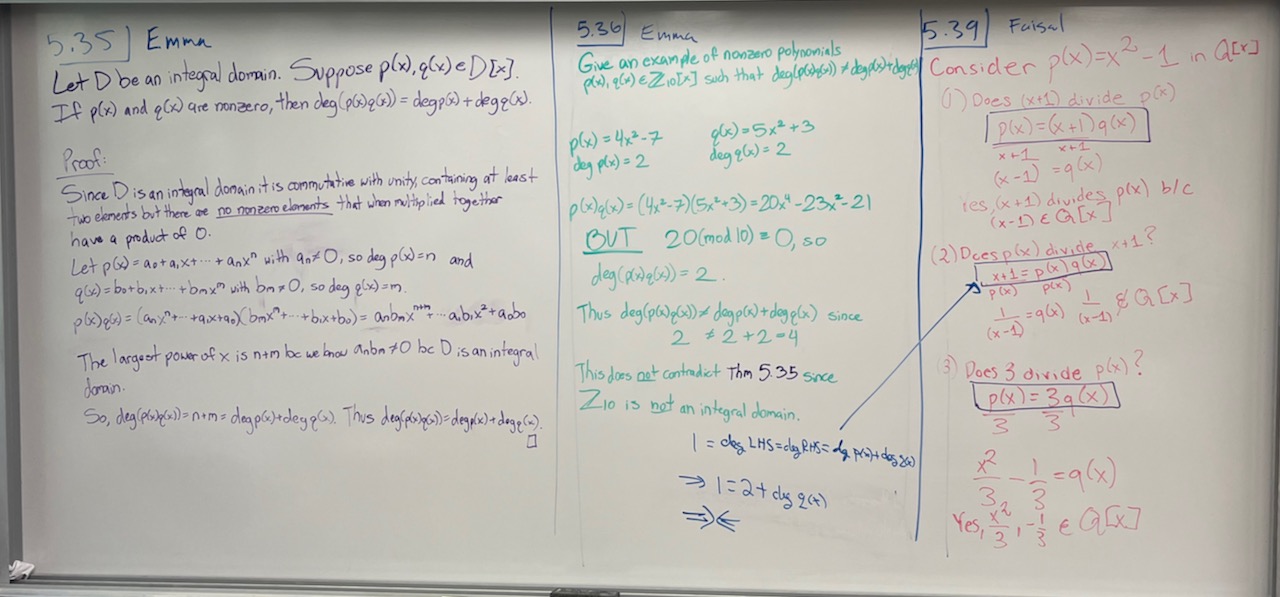 5.35 Emma
Let D be an integral domain. Suppose p(x), q(x) ∈ D[x].
If p(x) and q(x) are nonzero, then deg(p(x)q(x)) = deg p(x) + deg q(x).
Proof:
Since D is an integral domain it is commutative with unity, containing at least
two elements but there are no nonzero elements that when multiplied together
have a product of 0.
Let p(x) = a₀ + a₁x + ⋯ + aₙxⁿ with aₙ ≠ 0, so deg p(x) = n and
q(x) = b₀ + b₁x + ⋯ + bₘxᵐ with bₘ ≠ 0, so deg q(x) = m.
p(x)q(x) = (aₙxⁿ + ⋯ + a₁x + a₀)(bₘxᵐ + ⋯ + b₁x + b₀) = aₙbₘxⁿ⁺ᵐ + ⋯ a₁b₁x² + a₀b₀
The largest power of x is n+m bc we know aₙbₘ ≠ 0 bc D is an integral
domain.
So, deg(p(x)q(x)) = n+m = deg p(x) + deg q(x). Thus deg(p(x)q(x)) = deg p(x) + deg q(x).
□
5.36 Emma
Give an example of nonzero polynomials
p(x), q(x) ∈ Z₁₀[x] such that deg(p(x)q(x)) ≠ deg p(x) + deg q(x)
p(x) = 4x² - 7 q(x) = 5x² + 3
deg p(x) = 2 deg q(x) = 2
p(x)q(x) = (4x² - 7)(5x² + 3) = 20x⁴ - 23x² - 21
BUT 20 (mod 10) ≡ 0, so
deg(p(x)q(x)) = 2.
Thus deg(p(x)q(x)) ≠ deg p(x) + deg q(x) since
2 ≠ 2 + 2 = 4
This does not contradict Thm 5.35 since
Z₁₀ is not an integral domain.
1 = deg LHS = deg RHS = deg p(x) + deg q(x)
⇒ 1 = 2 + deg q(x)
⇒⇐
5.39 Faisal
Consider p(x) = x² - 1 in Q[x]
(1) Does (x+1) divide p(x)
p(x) = (x+1) q(x)
x+1 x+1
(x-1) = q(x)
Yes, (x+1) divides p(x) b/c
(x-1) ∈ Q[x]
(2) Does p(x) divide x+1?
x+1 = p(x) q(x)
p(x) p(x)
1/(x-1) = q(x) 1/(x-1) ∉ Q[x]
(3) Does 3 divide p(x)?
p(x) = 3 q(x)
3 3
x²/3 - 1/3 = q(x)
Yes, x²/3, -1/3 ∈ Q[x]